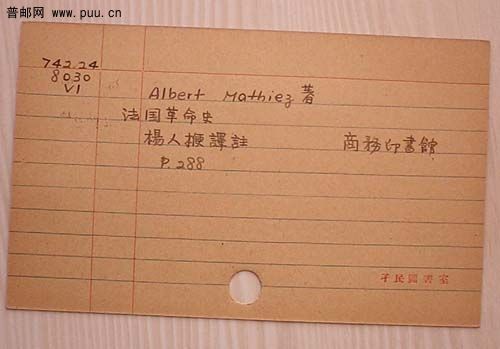 普邮网 www.puu.cn
742.24
8030
V1
Albert Mathiez 著
法国革命史
楊人楩譯註 商務印書館
P.288
孑民圖書室